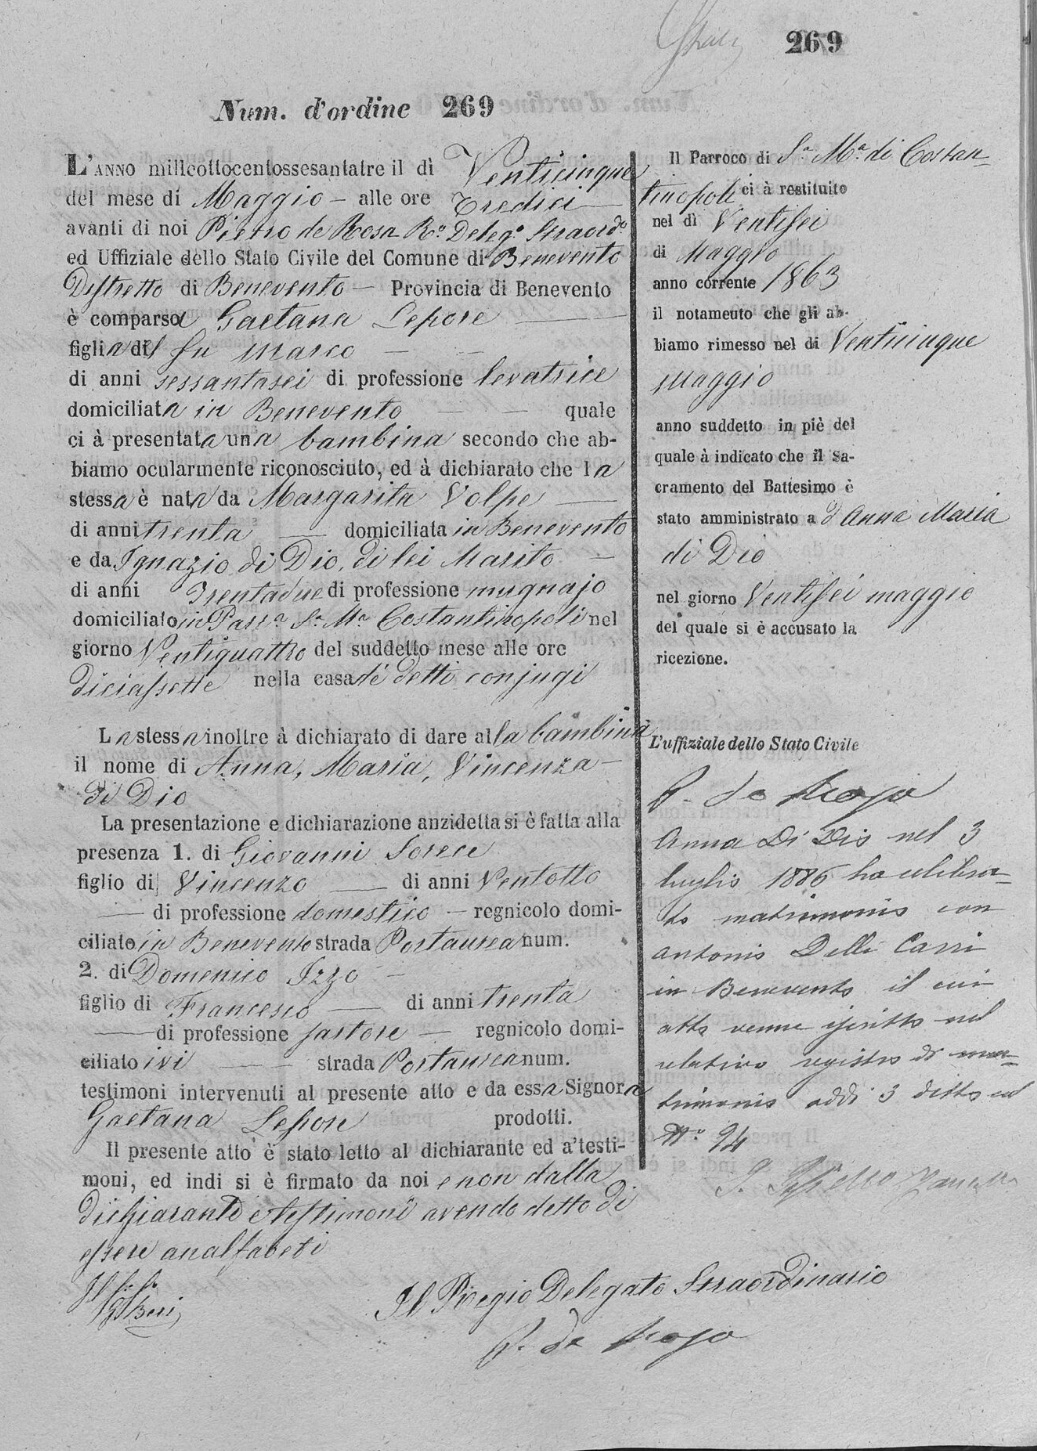 269
Num. d'ordine 269
L'ANNO milleottocentossesantatre il dì Venticinque
del mese di Maggio – alle ore Tredici
avanti di noi Pietro de Rosa R.º Deleg.º Straord.º
ed Uffiziale dello Stato Civile del Comune di Benevento
Distretto di Benevento – Provincia di Benevento
è comparsa Gaetana Lepore
figlia del fu Marco
di anni sessantasei di professione levatrice
domiciliata in Benevento quale
ci à presentata una bambina secondo che ab-
biamo ocularmente riconosciuto, ed à dichiarato che la
stessa è nata da Margarita Volpe
di anni trenta domiciliata in Benevento
e da Ignazio di Dio, di lei Marito
di anni Trentadue di professione mugnajo
domiciliato in Parr.ª S.ª M.ª Costantinopoli nel
giorno Ventiquattro del suddetto mese alle ore
diciassette nella casa de' detti conjugi
La stessa inoltre à dichiarato di dare alla bambina
il nome di Anna, Maria, Vincenza –
di Dio
La presentazione e dichiarazione anzidetta si è fatta alla
presenza 1. di Giovanni Sorece
figlio di Vincenzo di anni Ventotto
di professione domestico – regnicolo domi-
ciliato in Benevento strada Portaurea num.
2. di Domenico Izzo
figlio di Francesco di anni trenta
di professione sartore – regnicolo domi-
ciliato ivi strada Portaurea num.
testimoni intervenuti al presente atto e da essa Signora
Gaetana Lepore prodotti.
Il presente atto è stato letto al dichiarante ed a' testi-
moni, ed indi si è firmato da noi e non dalla
dichiarante e testimoni avendo detto di
essere analfabeti
Il Regio Delegato Straordinario
P. de Rosa
Il Parroco di S.ª M.ª di Costan-
tinopoli ci à restituito
nel dì Ventisei
di Maggio
anno corrente 1863
il notamento che gli ab-
biamo rimesso nel di Venticinque
Maggio
anno suddetto in piè del
quale à indicato che il Sa-
cramento del Battesimo è
stato amministrato a d'Anna Maria
di Dio
nel giorno Ventisei maggio
del quale si è accusato la
ricezione.
L'uffiziale dello Stato Civile
P. de Rosa
Anna Di Dio nel 3
luglio 1886 ha celebra-
to matrimonio con
Antonio Delli Carri
in Benevento il cui
atto venne iscritto nel
relativo registro di ma-
trimonio addì 3 detto al
N.º 94